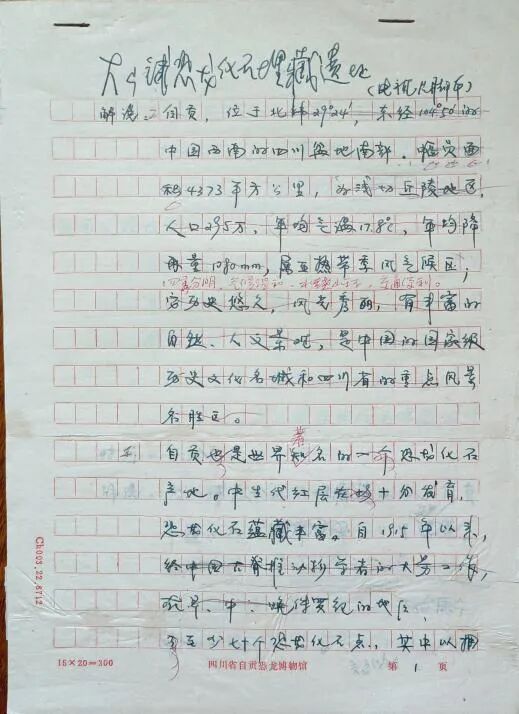 大山铺恐龙化石埋藏遗址
(电视片脚本)
解说：自贡，位于北纬29°24′，东经104°50′的
中国西南的四川盆地南部。幅员面
积4373平方公里，为浅切丘陵地区，
人口295万，年均气温17.8℃，年均降
雨量1080mm，属亚热带季风气候区；
四季分明，气候温和，
历史悠久，风光秀丽，有丰富的
自然、人文景观，是中国的国家级
历史文化名城和四川省的重点风景
名胜区。
著
自贡也是世界知名的一个恐龙化石
产地。中生代红层在境十分发育，
恐龙化石蕴藏丰富。自1915年以来，
经中国古脊椎动物学者的大劳工作，
在早、中、晚侏罗纪的地区
至少七十个恐龙化石点，其中以
Ch003.22.8712
15×20=300
四川省自贡恐龙博物馆
第 1 页